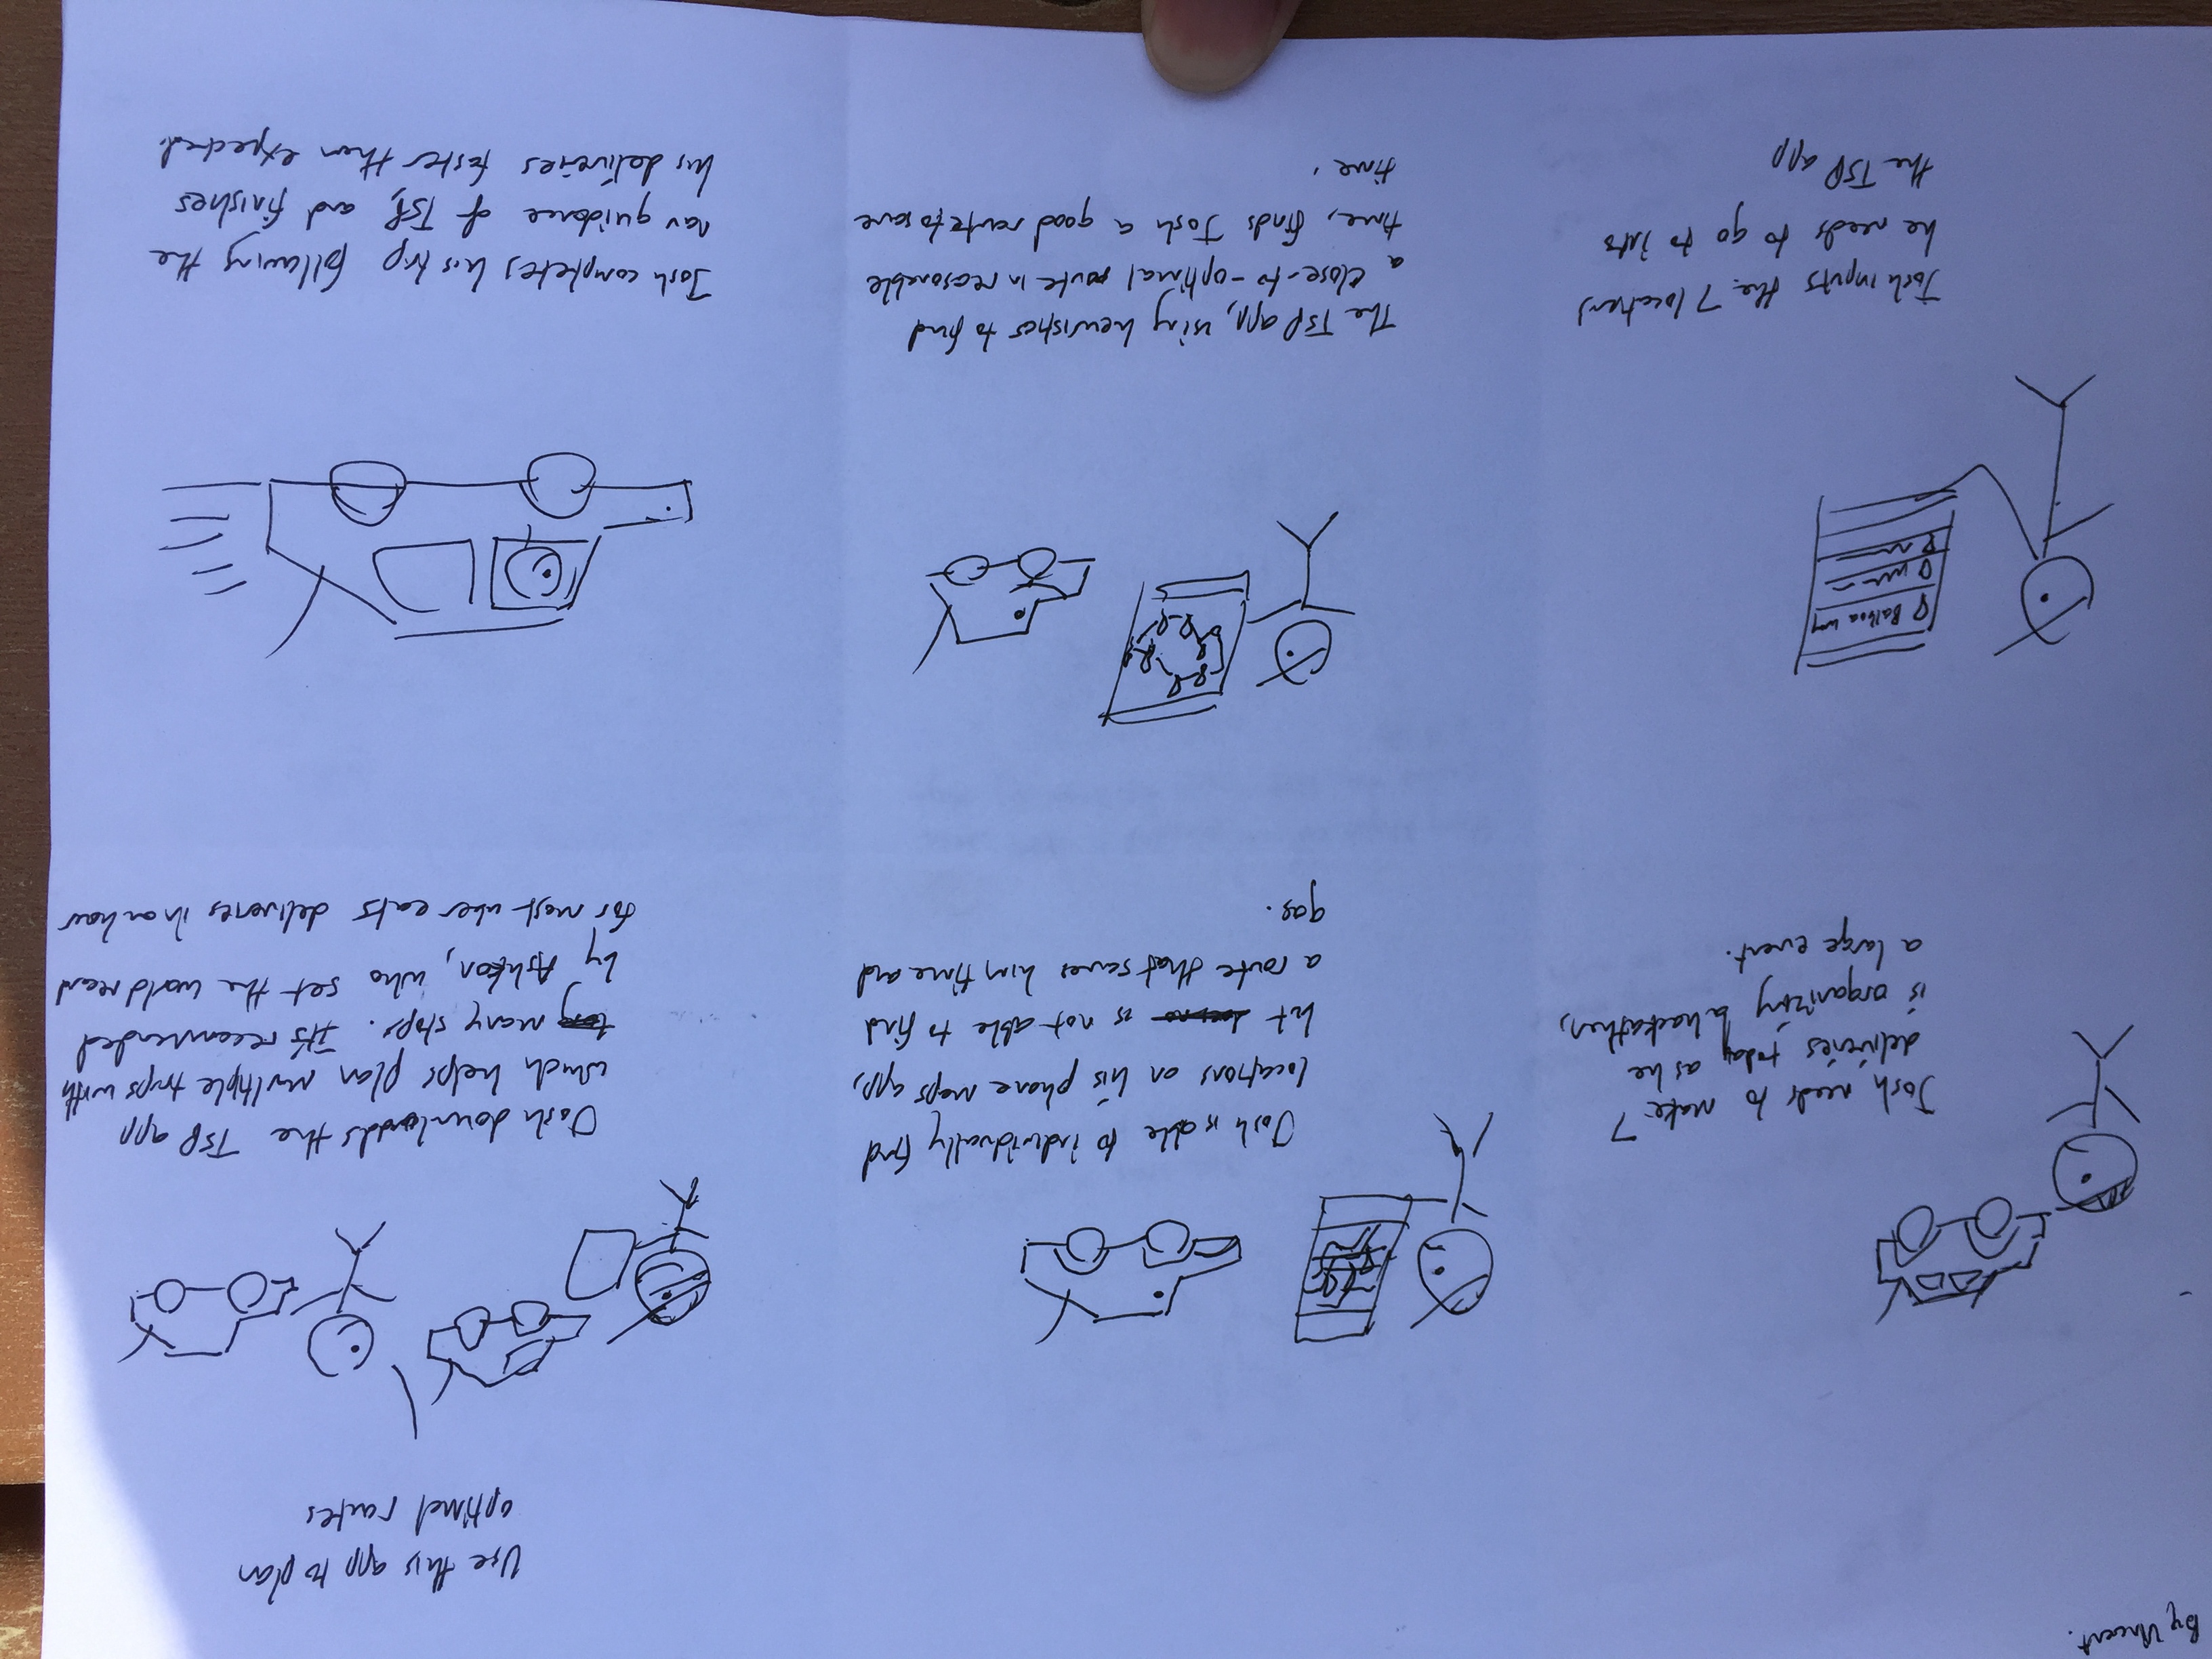 By Vincent.
Josh needs to make 7
deliveries today as he
is organizing a hackathon,
a large event.
Josh is able to individually find
locations on his phone maps app,
but is not able to find
a route that saves him time and
gas.
Use this app to plan
optimal routes
Josh downloads the TSP app
which helps plan multiple trips with
long many stops. It's recommended
by Ashkon, who set the world record
for most uber eats deliveries in an hour
Balboa way
Josh inputs the 7 locations
he needs to go to into
the TSP app
The TSP app, using heuristics to find
a close-to-optimal route in reasonable
time, finds Josh a good route to save
time.
Josh completes his trip following the
nav guidance of TSP, and finishes
his deliveries faster than expected.